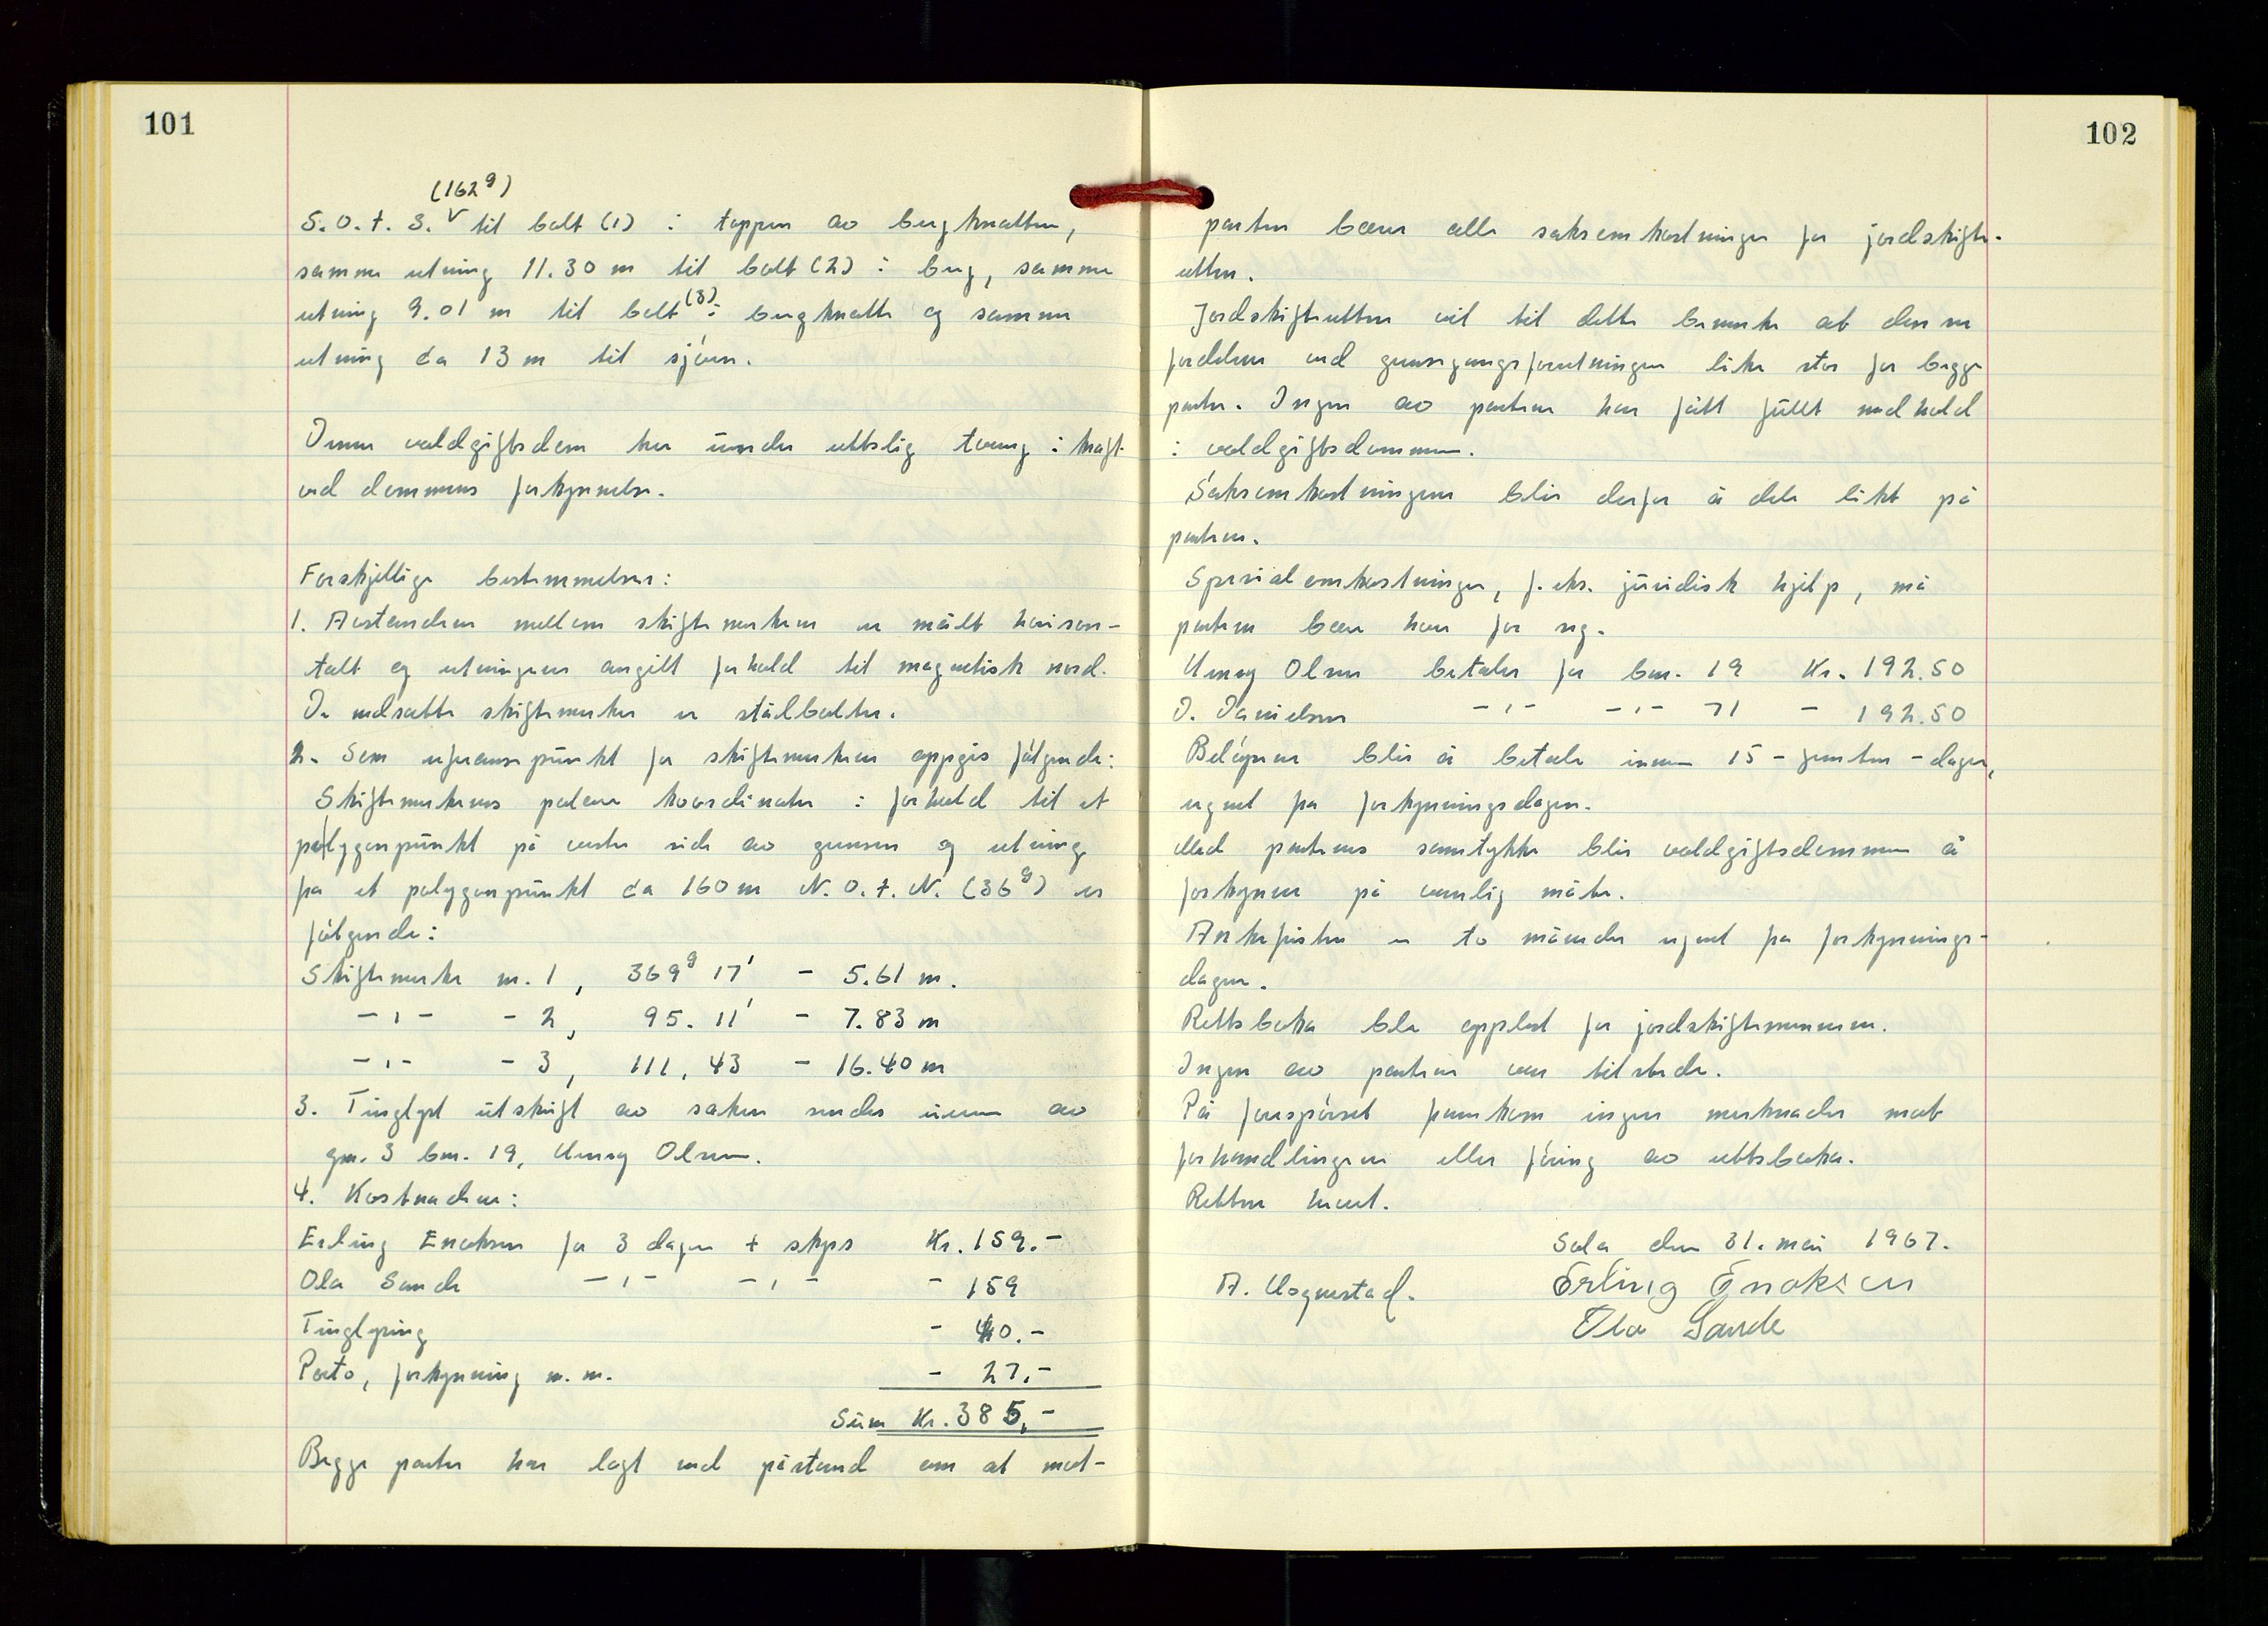 101
(162g)
S. O. t. S. v til bolt (1) i toppen av bergknatten,
samme retning 11.30 m til bolt (2) i berg, samme
retning 9.01 m til bolt (3) i bergknatt og samme
retning ca 13 m til sjøen.
Denne voldgiftsdom har under rettslig tvang i kraft
ved dommens forkynnelse.
Forskjellige bestemmelser:
1. Avstanden mellom skiftemerkene er målt horison-
talt og retningene angitt forhold til magnetisk nord.
De nedsatte skiftemerker er stålbolter.
2. Som referansepunkt for skiftemerkene oppgis følgende:
Skiftemerkenes polare koordinater i forhold til et
polygonpunkt på vestre side av grensen og retning
fra et polygonpunkt ca 160 m N. O. t. N. (36g) er
følgende:
Skiftemerke nr. 1, 369g 17' - 5.61 m.
-"- - 2, 95. 11' - 7.83 m
-"- - 3, 111, 43 - 16.40 m
3. Tinglyst utskrift av saken sendes eieren av
gnr. 3 bnr. 19, Umey Olsen.
4. Kostnadene:
Erling Enoksen for 3 dager + skyss Kr. 159.-
Ola Sande -"- -"- - 159
Tinglysing - 40.-
Porto, forkynning m. m. - 27.-
Sum Kr. 385,-
Begge parter har lagt ned påstand om at mot-
102
parten bærer alle saksomkostninger for jordskifte-
retten.
Jordskifteretten vil til dette bemerke at denne
fordelen ved grensegangsforretningen like stor for begge
parter. Ingen av partene har fått fullt medhold
i voldgiftsdommen.
Saksomkostningene blir derfor å dele likt på
partene.
Spesialomkostninger, f. eks. juridisk hjelp, må
partene bære hver for seg.
Umey Olsen betaler for bnr. 19 Kr. 192.50
D. Danielsen -"- -"- 71 - 192.50
Beløpene blir å betale innen 15 - femten - dager,
regnet fra forkynningsdagen.
Med partenes samtykke blir voldgiftsdommen å
forkynne på vanlig måte.
Ankefristen er to måneder regnet fra forkynnings-
dagen.
Rettsboka ble opplest for jordskiftemennene.
Ingen av partene var tilstede.
På forespørsel fremkom ingen merknader mot
forhandlingene eller føring av rettsboka.
Retten hevet.
Sola den 31. mai 1967.
A. Vognestad. Erling Enoksen
Ola Sande